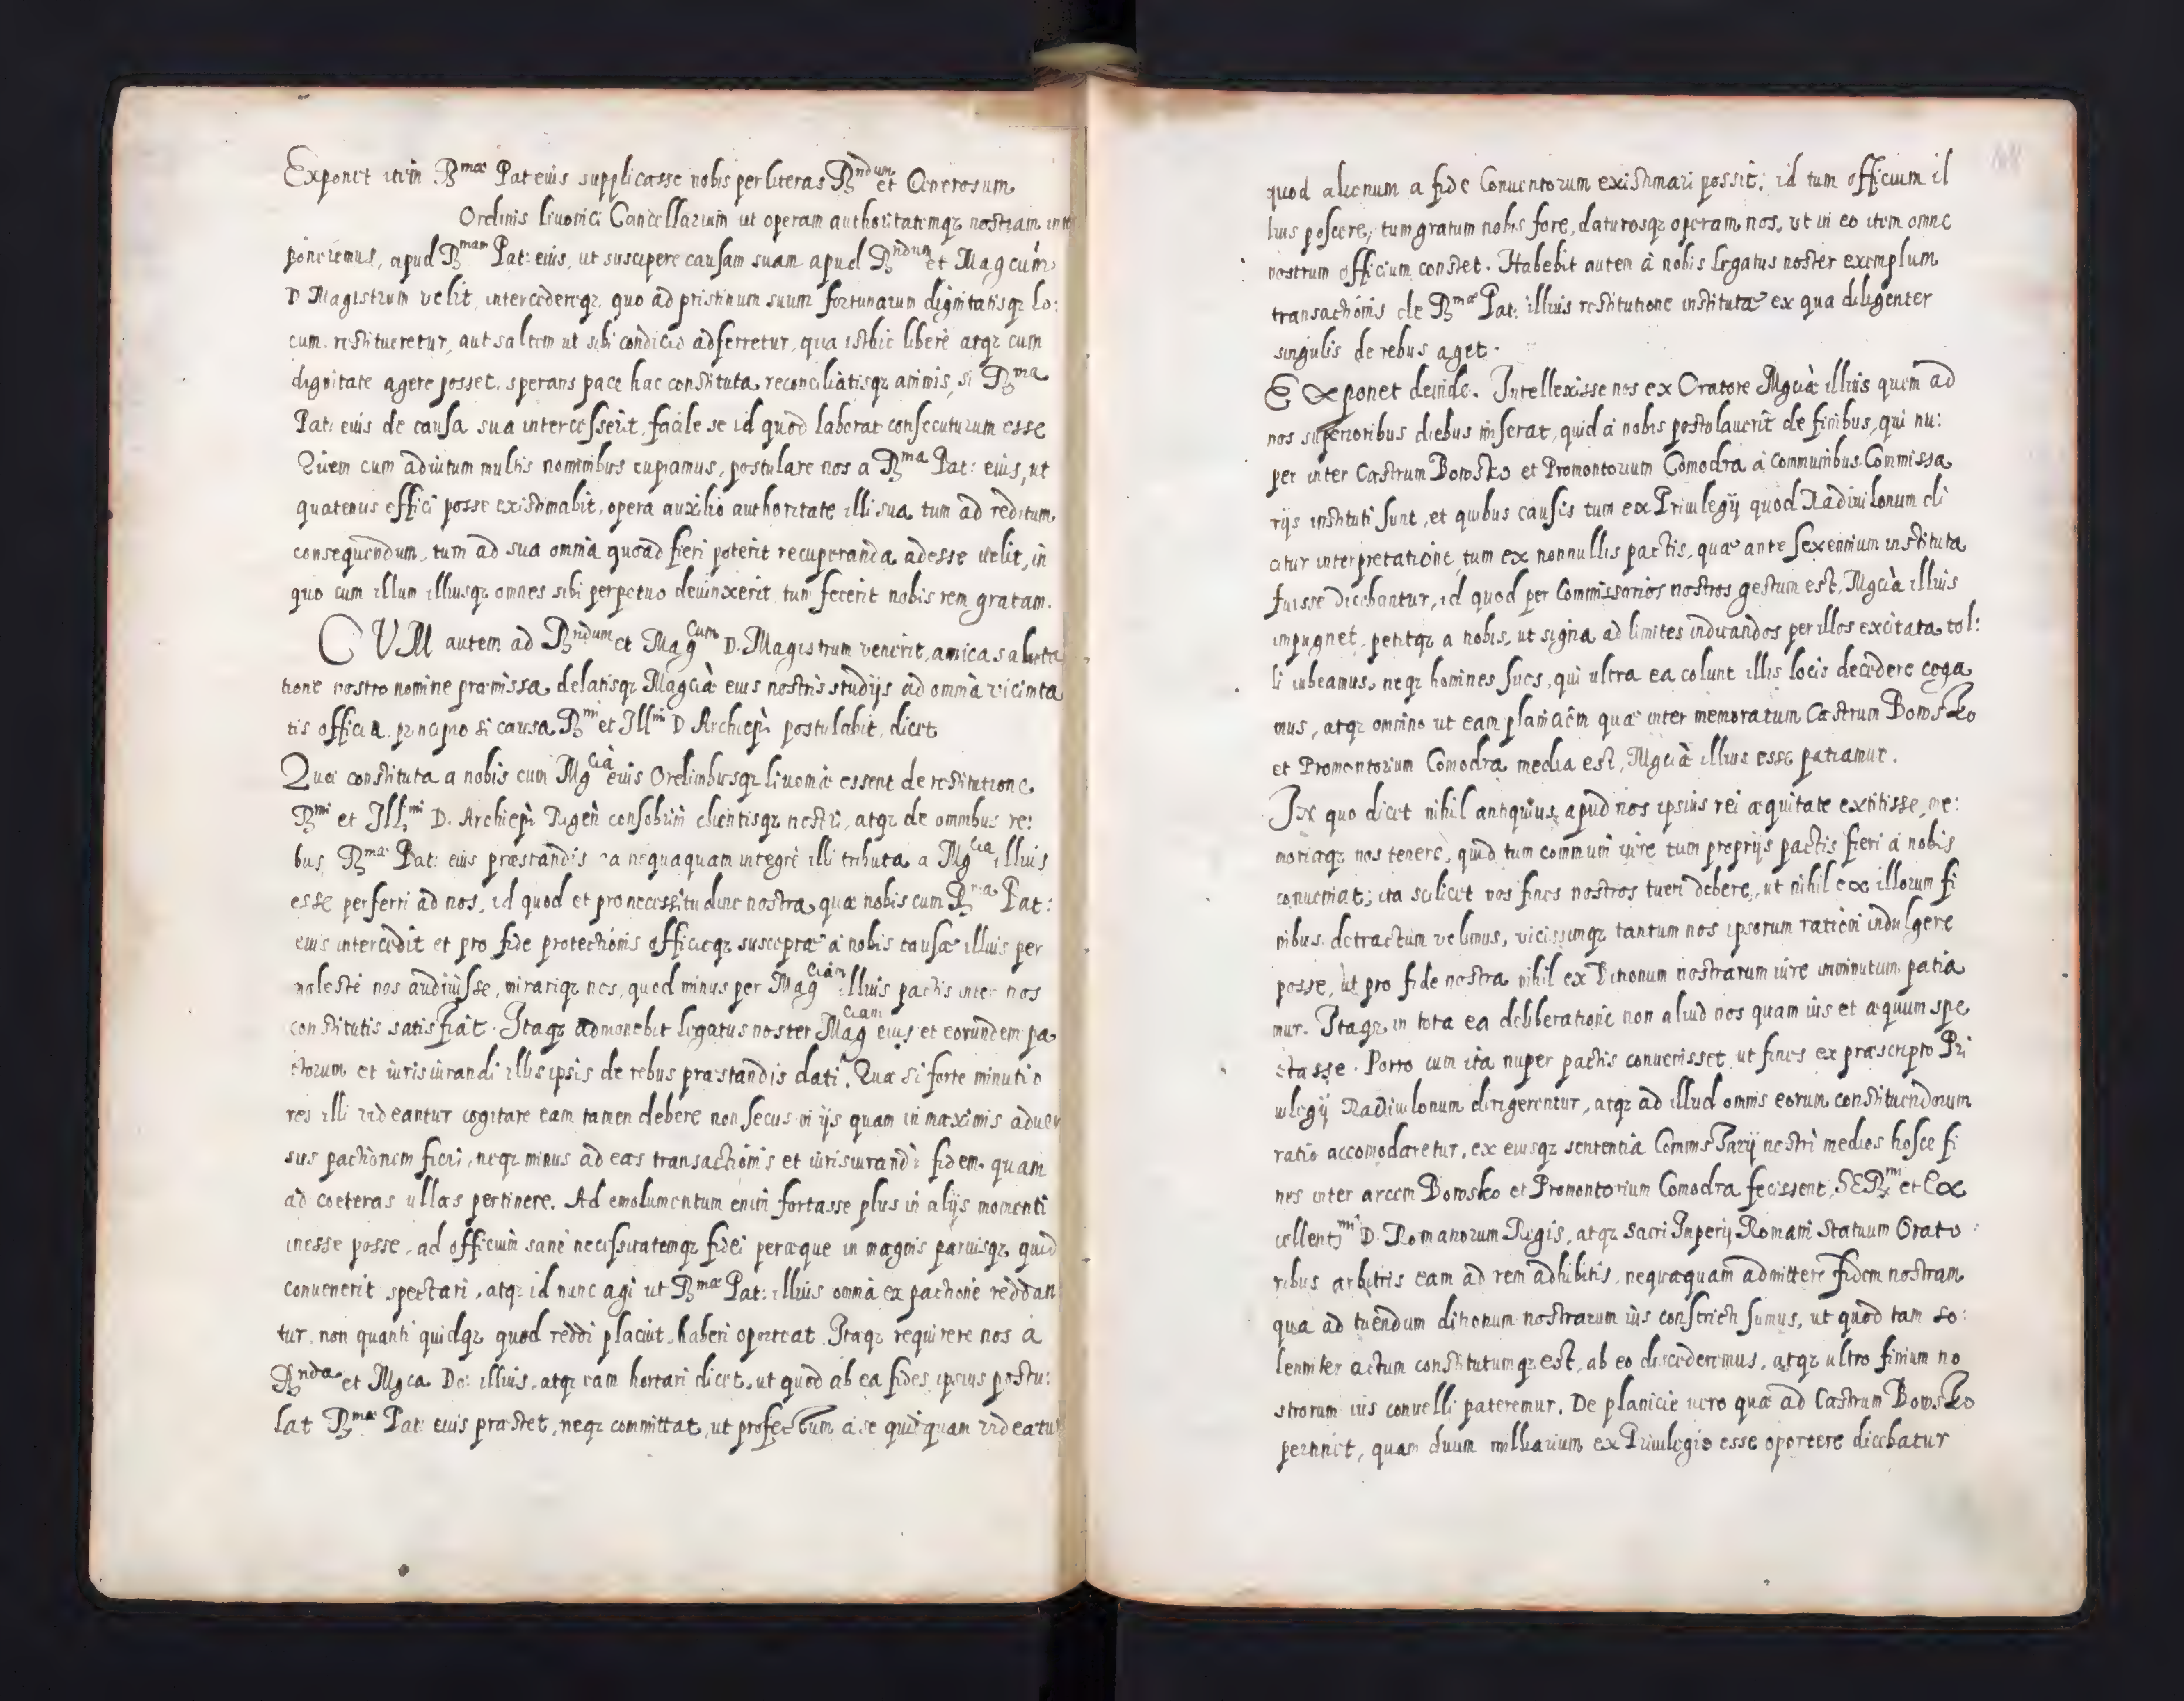 Exponet itim Rmae Pat eius supplicasse nobis per literas Rndum et Generosum
Ordinis livonici Cancellarium ut operam authoritatemqz nostram inter
poneremus, apud Rmam Pat: eius, ut suscipere causam suam apud Rndum et Magcum
D Magistrum velit, intercedereqz, quo ad pristinum suum fortunarum dignitatisqz lo:
cum restitueretur, aut saltem ut sibi condicio adferretur, qua isthic liberè atqz cum
dignitate agere posset, sperans pace hac constituta, reconciliatisqz animis, si Rma
Pat: eius de causa sua intercesserit, facile se id quod laborat consecuturum esse
Quem cum adiutum multis nominibus cupiamus, postulare nos a Rma Pat: eius, ut
quatenus effici posse existimabit, opera auxilio authoritate illi sua tum ad reditum
consequendum, tum ad sua omnia quoad fieri poterit recuperanda adesse velit, in
quo cum illum illiusqz omnes sibi perpetuo devinxerit, tum fecerit nobis rem gratam.
CUM autem ad Rndum et Magcum D. Magistrum venerit, amica saluta
tione nostro nomine praemissa, delatisqz Magcià eius nostris studijs ad omnia vicinita
tis officia, principio si causa Rmi et Illmi D Archiepi postulabit, dicet
Quae constituta a nobis cum Mgcia eius Ordinibusqz livoniae essent de restitutione
Rmi et Illmi D. Archiepi Rigen consobrini clientisqz nostri, atqz de omnibus re:
bus, Rmae Pat: eius praestandis ea nequaquam integrè illi tributa a Mgcia illius
esse perferri ad nos, id quod et pro necessitudine nostra quae nobis cum Rma Pat:
eius intercedit et pro fide protectionis officiiqz susceptae a nobis causae illius per
molestè nos audivisse, mirariqz nos, quod minus per Magciam illius pactis inter nos
constitutis satisfiat. Itaqz admonebit legatus noster Magciam eius et eorundem pa
ctorum et iurisiurandi illis ipsis de rebus praestandis dati. Quae si forte minutio
res illi videantur cogitare eam tamen debere non secus in ijs quam in maximis adver
sus pactionem fieri, neqz minus ad eas transactionis et iurisiurandi fidem quam
ad coeteras ullas pertinere. Ad emolumentum enim fortasse plus in alijs momenti
inesse posse, ad officium sanè necessitatemqz fidei peraeque in magnis parvisqz, quid
convenerit spectari, atqz id nunc agi ut Rmae Pat: illius omnia ex pactione reddan
tur, non quanti quidqz quod reddi placuit, haberi oporteat. Itaqz requirere nos a
Rnda et Mgca Do: illius, atqz eam hortari dicet, ut quod ab ea fides ipsius postu:
lat Rmae Pat: eius praestet, neqz committat, ut profectum a se quidquam videatur
quod alienum a fide Conventorum existimari possit; id tum officium il
lius poscere, tum gratum nobis fore, daturosqz operam nos, ut in eo item omne
nostrum officium constet. Habebit autem à nobis legatus noster exemplum
transactionis de Rmae Pat: illius restitutione institutae ex qua diligenter
singulis de rebus aget.
Exponet deinde. Intellexisse nos ex Oratore Mgcià illius quem ad
nos superioribus diebus miserat, quid a nobis postulaverit de finibus, qui nu:
per inter Castrum Bowsko et Promontorium Comodra a communibus Commissa
rijs instituti sunt, et quibus causis tum ex Privilegij quod Radivilonum di
citur interpretatione, tum ex nonnullis pactis, quae ante sexennium instituta
fuisse dicebantur, id quod per Commissarios nostros gestum est, Mgcià illius
impugnet, petitqz a nobis, ut signa ad limites indicandos per illos excitata tol:
li iubeamus, neqz homines suos, qui ultra ea colunt illis locis decedere coga
mus, atqz omnino ut eam planiciem quae inter memoratum Castrum Bowsko
et Promontorium Comodra media est, Mgcià illius esse patiamur.
In quo dicet nihil antiquius apud nos ipsius rei aequitate extitisse, me:
moriaqz nos tenere, quid tum communi iure tum proprijs pactis fieri a nobis
conveniat; ita scilicet nos fines nostros tueri debere, ut nihil ex illorum fi
nibus detractum velimus, vicissimqz tantum nos ipsorum rationi indulgere
posse, ut pro fide nostra nihil ex Ditionum nostrarum iure imminutum patia
mur. Itaqz in tota ea deliberatione non aliud nos quam ius et aequum spe
ctasse. Porro cum ita nuper pactis convenisset ut fines ex praescripto Pri
vilegij Radivilonum dirigerentur, atqz ad illud omnis eorum constituendorum
ratio accomodaretur, ex eiusqz sententia Commissarij nostri medios hosce fi
nes inter arcem Bowsko et Promontorium Comodra fecissent, SERmi et Ex
cellentmi D. Romanorum Regis, atqz Sacri Imperij Romani Statuum Orato:
ribus arbitris eam ad rem adhibitis, nequaquam admittere fidem nostram
qua ad tuendum ditionum nostrarum ius constricti sumus, ut quod tam so:
lenniter actum constitutumqz est, ab eo discederemus, atqz ultro finium no
strorum ius convelli pateremur. De planicie vero quae ad Castrum Bowsko
pertinet, quam duum milliarium ex Privilegio esse oportere dicebatur